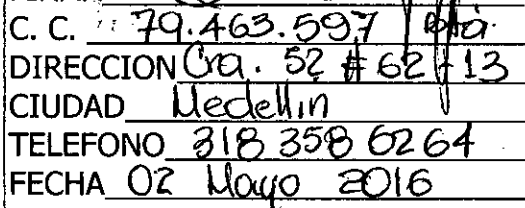 C. C. 79.463.597 Btá.
DIRECCION Cra. 52 # 62-13
CIUDAD Medellin
TELEFONO 318 358 6264
FECHA 02 Mayo 2016